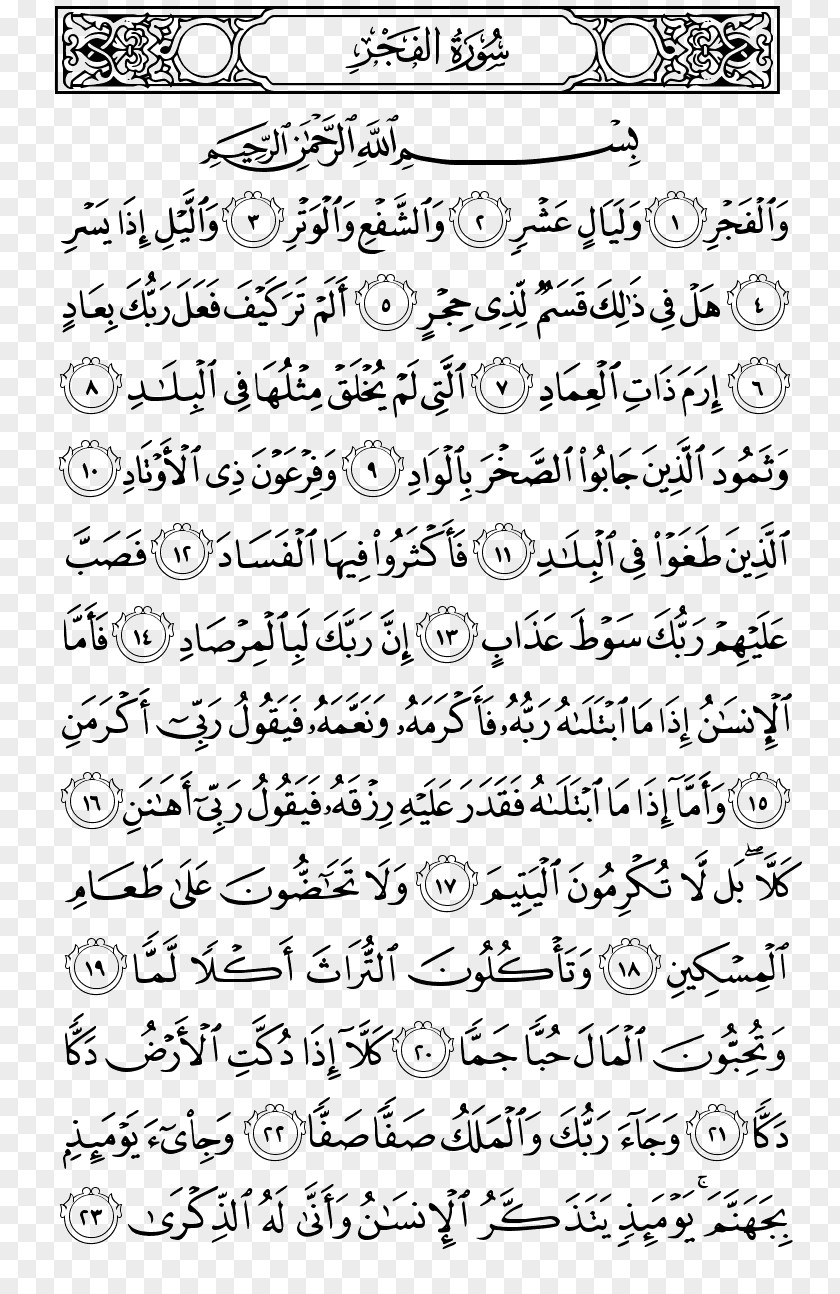 سُورَةُ الفَجْرِ
بِسْمِ اللَّهِ الرَّحْمَٰنِ الرَّحِيمِ
وَٱلْفَجْرِ ١ وَلَيَالٍ عَشْرٍ ٢ وَٱلشَّفْعِ وَٱلْوَتْرِ ٣ وَٱلَّيْلِ إِذَا يَسْرِ
٤ هَلْ فِى ذَٰلِكَ قَسَمٌ لِّذِى حِجْرٍ ٥ أَلَمْ تَرَ كَيْفَ فَعَلَ رَبُّكَ بِعَادٍ
٦ إِرَمَ ذَاتِ ٱلْعِمَادِ ٧ ٱلَّتِى لَمْ يُخْلَقْ مِثْلُهَا فِى ٱلْبِلَـٰدِ ٨
وَثَمُودَ ٱلَّذِينَ جَابُوا۟ ٱلصَّخْرَ بِٱلْوَادِ ٩ وَفِرْعَوْنَ ذِى ٱلْأَوْتَادِ ١٠
ٱلَّذِينَ طَغَوْا۟ فِى ٱلْبِلَـٰدِ ١١ فَأَكْثَرُوا۟ فِيهَا ٱلْفَسَادَ ١٢ فَصَبَّ
عَلَيْهِمْ رَبُّكَ سَوْطَ عَذَابٍ ١٣ إِنَّ رَبَّكَ لَبِٱلْمِرْصَادِ ١٤ فَأَمَّا
ٱلْإِنسَـٰنُ إِذَا مَا ٱبْتَلَىٰهُ رَبُّهُۥ فَأَكْرَمَهُۥ وَنَعَّمَهُۥ فَيَقُولُ رَبِّىٓ أَكْرَمَنِ
١٥ وَأَمَّآ إِذَا مَا ٱبْتَلَىٰهُ فَقَدَرَ عَلَيْهِ رِزْقَهُۥ فَيَقُولُ رَبِّىٓ أَهَـٰنَنِ ١٦
كَلَّا ۖ بَل لَّا تُكْرِمُونَ ٱلْيَتِيمَ ١٧ وَلَا تَحَـٰٓضُّونَ عَلَىٰ طَعَامِ
ٱلْمِسْكِينِ ١٨ وَتَأْكُلُونَ ٱلتُّرَاثَ أَكْلًا لَّمًّا ١٩
وَتُحِبُّونَ ٱلْمَالَ حُبًّا جَمًّا ٢٠ كَلَّآ إِذَا دُكَّتِ ٱلْأَرْضُ دَكًّا
دَكًّا ٢١ وَجَآءَ رَبُّكَ وَٱلْمَلَكُ صَفًّا صَفًّا ٢٢ وَجِا۟ىٓءَ يَوْمَئِذٍۭ
بِجَهَنَّمَ ۚ يَوْمَئِذٍ يَتَذَكَّرُ ٱلْإِنسَـٰنُ وَأَنَّىٰ لَهُ ٱلذِّكْرَىٰ ٢٣